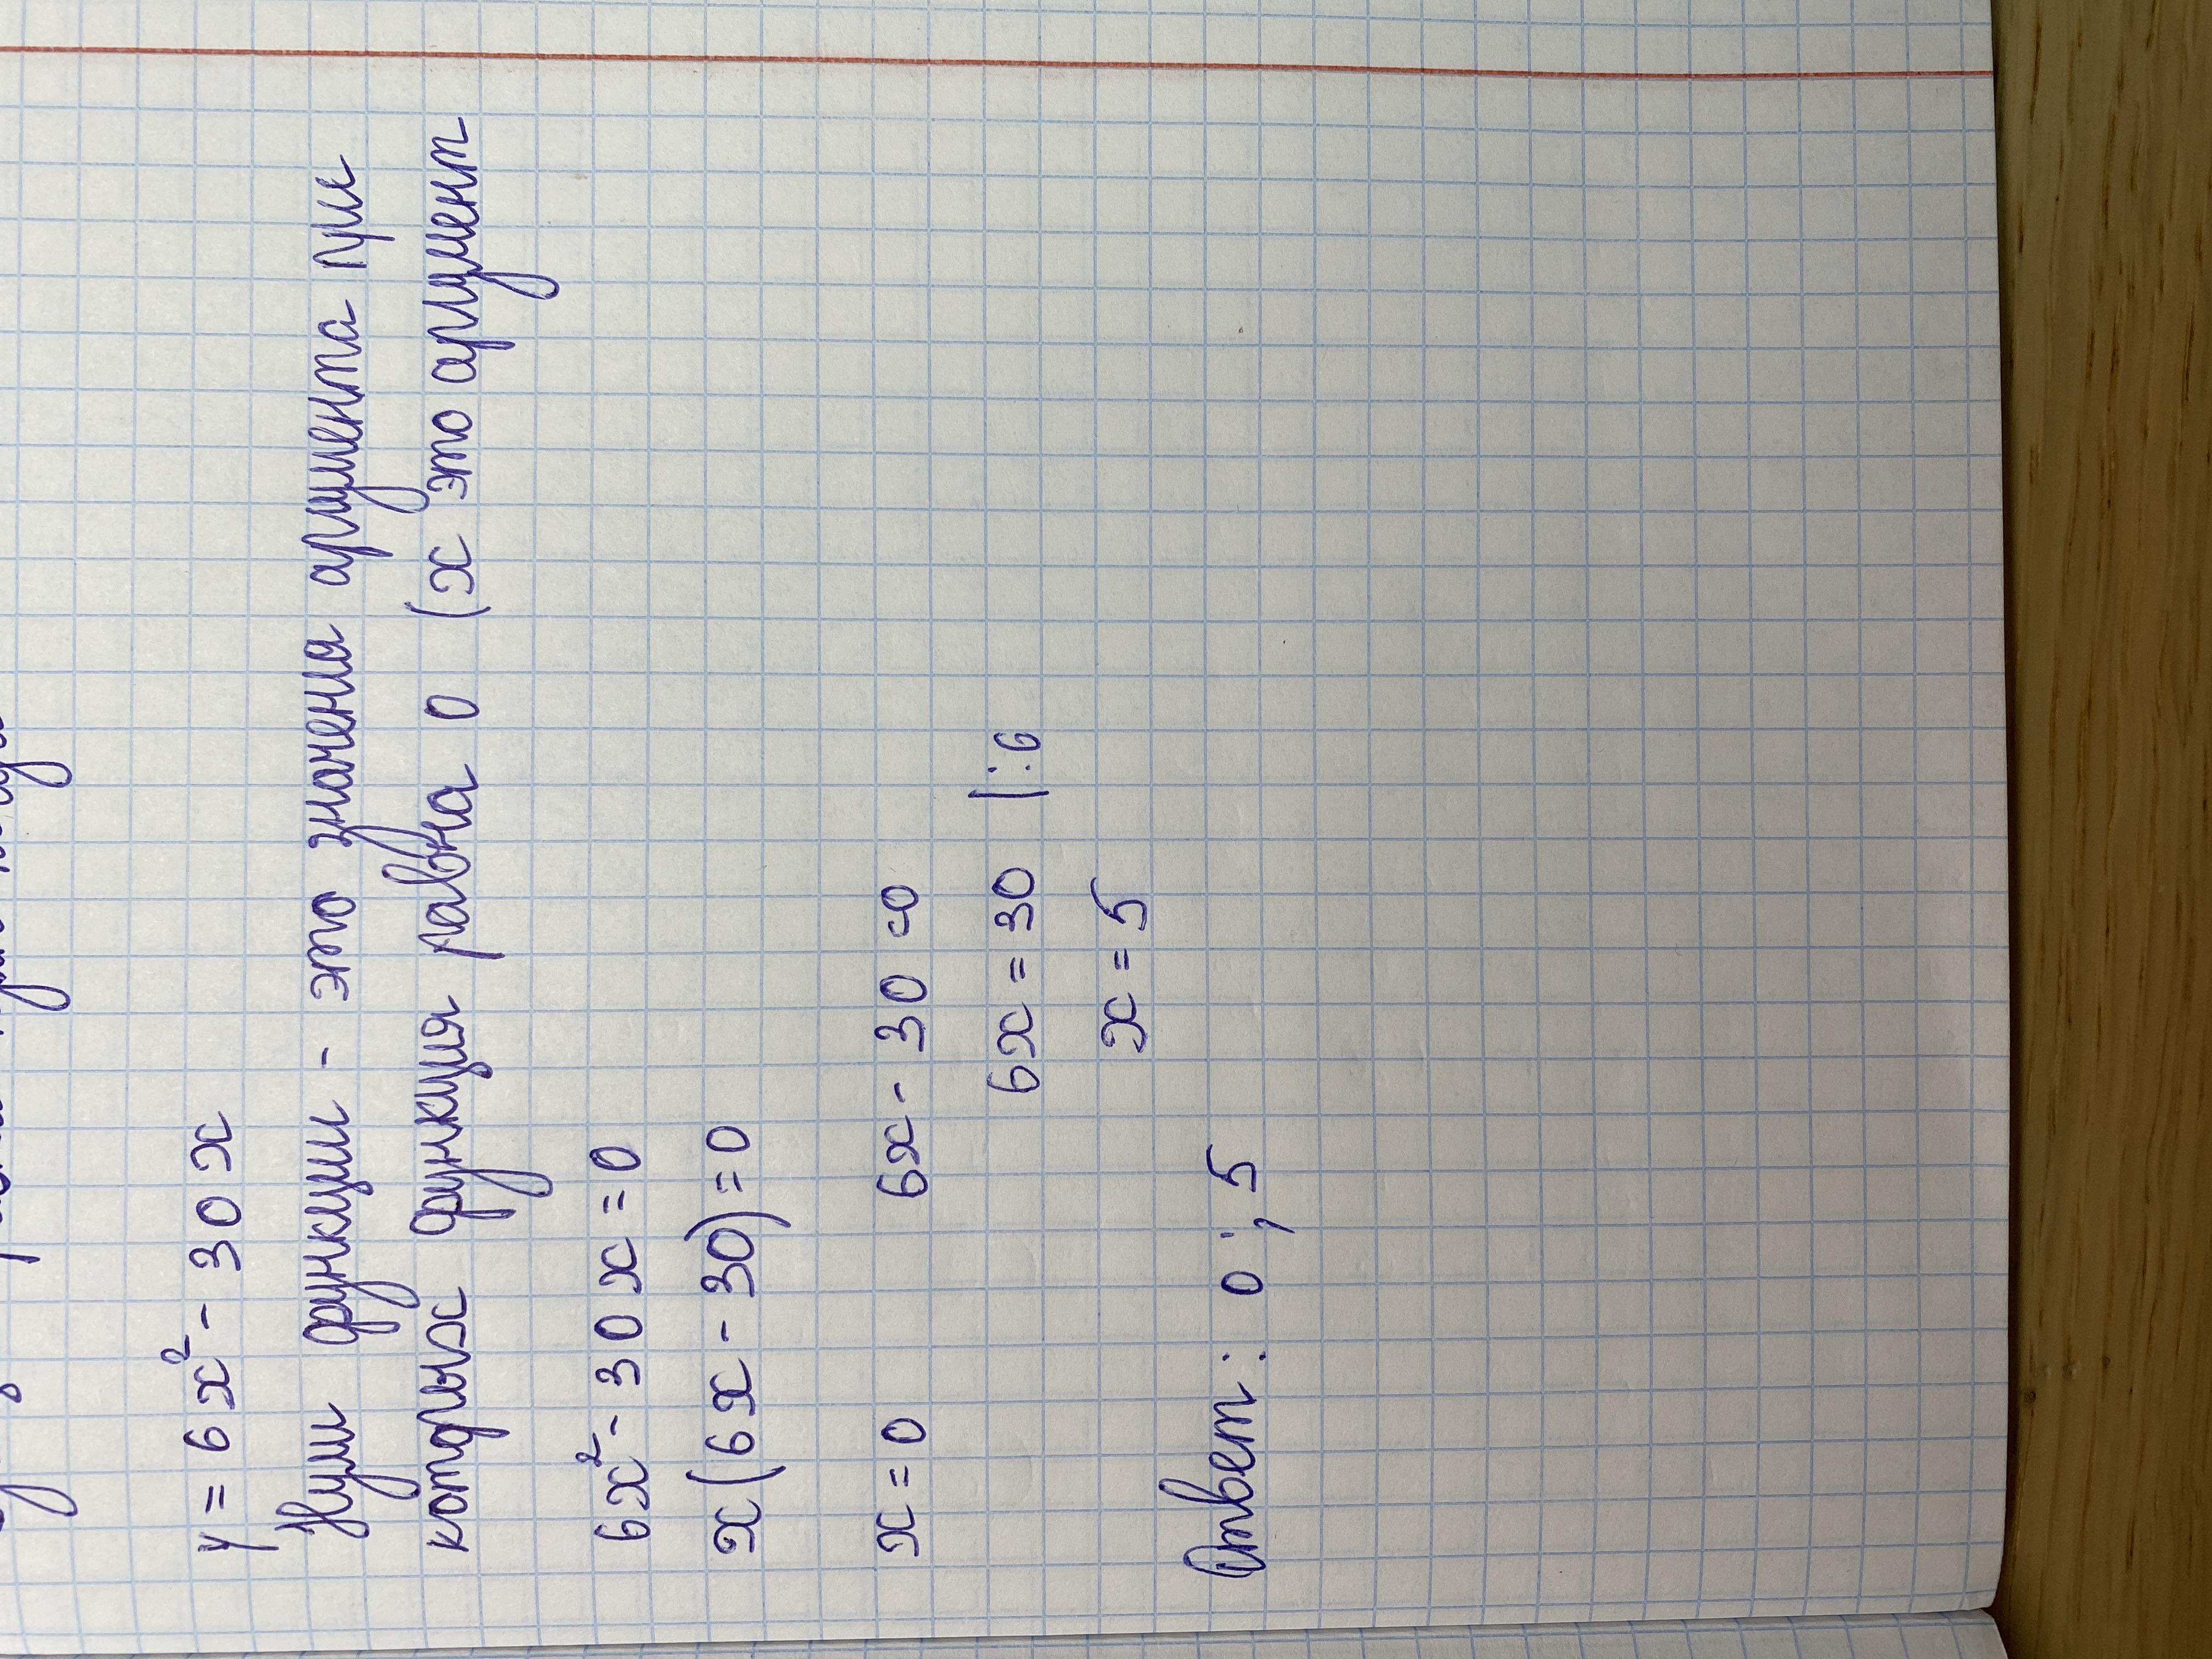 y = 6x² - 30x
Нули функции - это значена аргумента при
которых функция равна 0 (x это аргумент
6x² - 30x = 0
x(6x - 30) = 0
x = 0 6x - 30 = 0
6x = 30 |:6
x = 5
Ответ: 0 ; 5